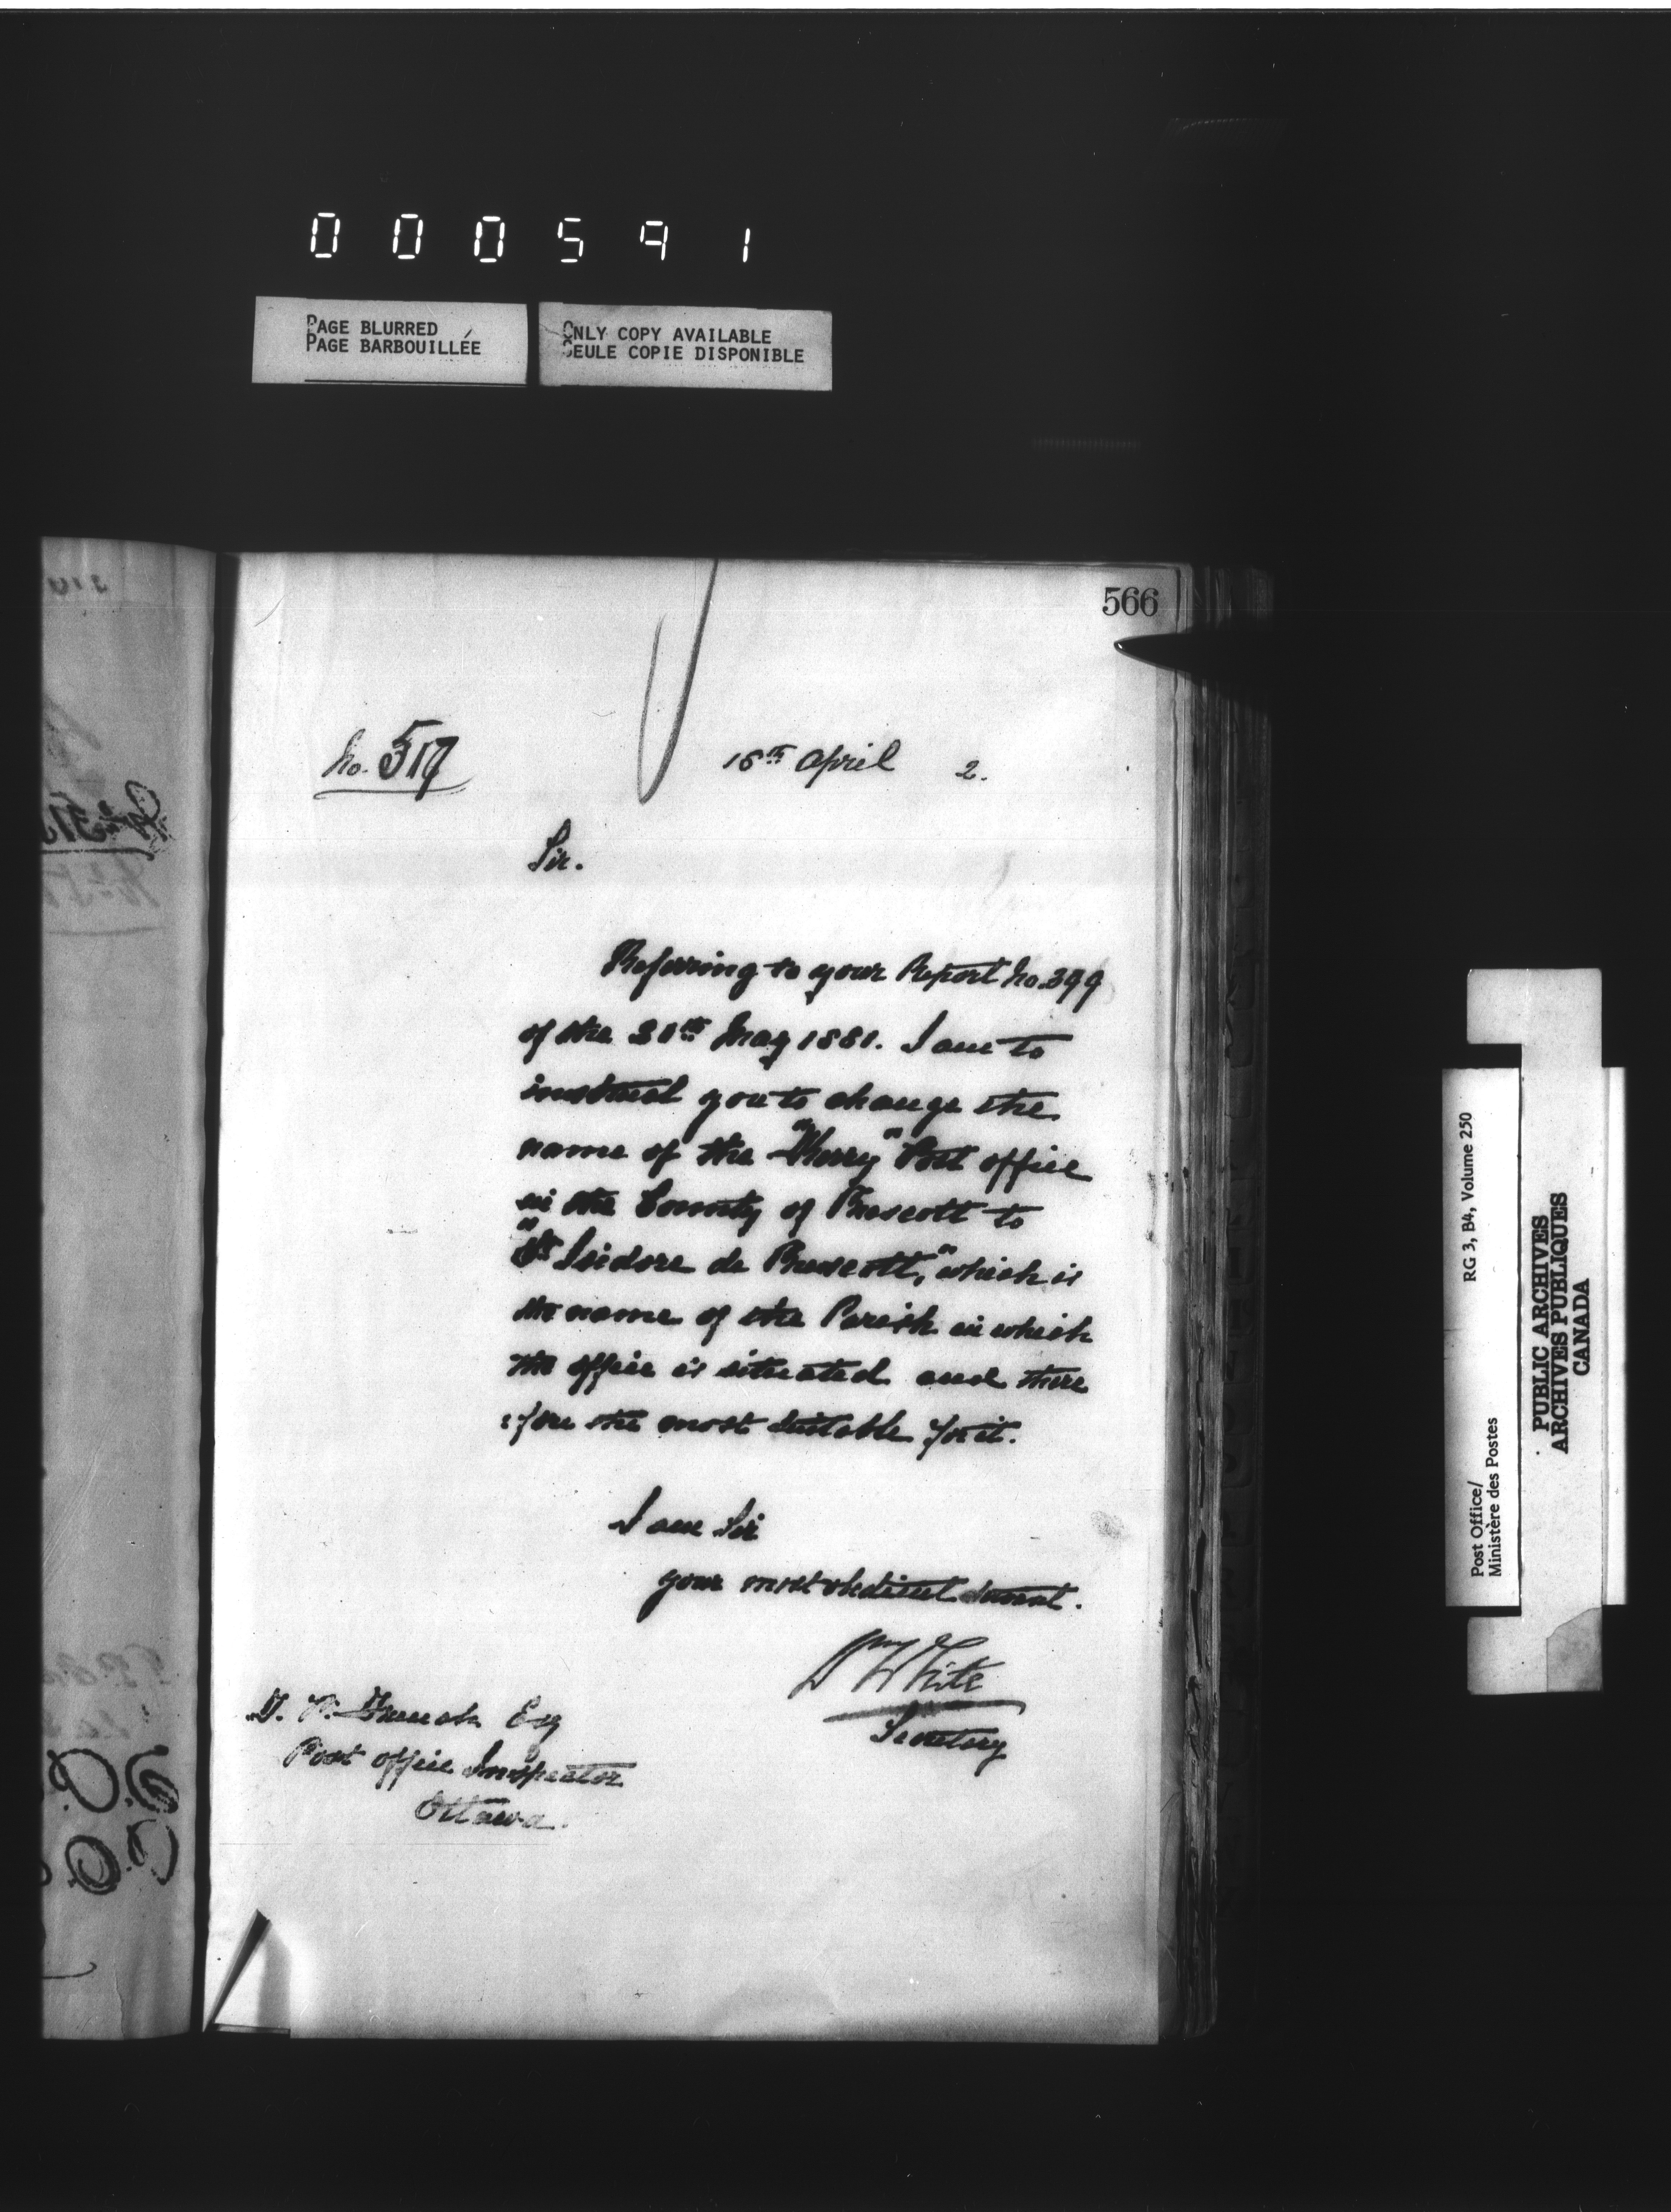 000591
PAGE BLURRED
PAGE BARBOUILLÉE
ONLY COPY AVAILABLE
SEULE COPIE DISPONIBLE
566
No. 517
18th April 2.
Sir.
Referring to your Report No. 399
of the 31st May 1881. I am to
instruct you to change the
name of the " " Post office
in the County of Prescott to
"St Isidore de Prescott," which is
the name of the Parish in which
the office is situated and there
:fore the most suitable for it.
I am Sir
your most obedient servant.
Wm White
Secretary
T. P. French Esq
Post office Inspector
Ottawa.
Post Office/
Ministère des Postes
RG 3, B4, Volume 250
PUBLIC ARCHIVES
ARCHIVES PUBLIQUES
CANADA